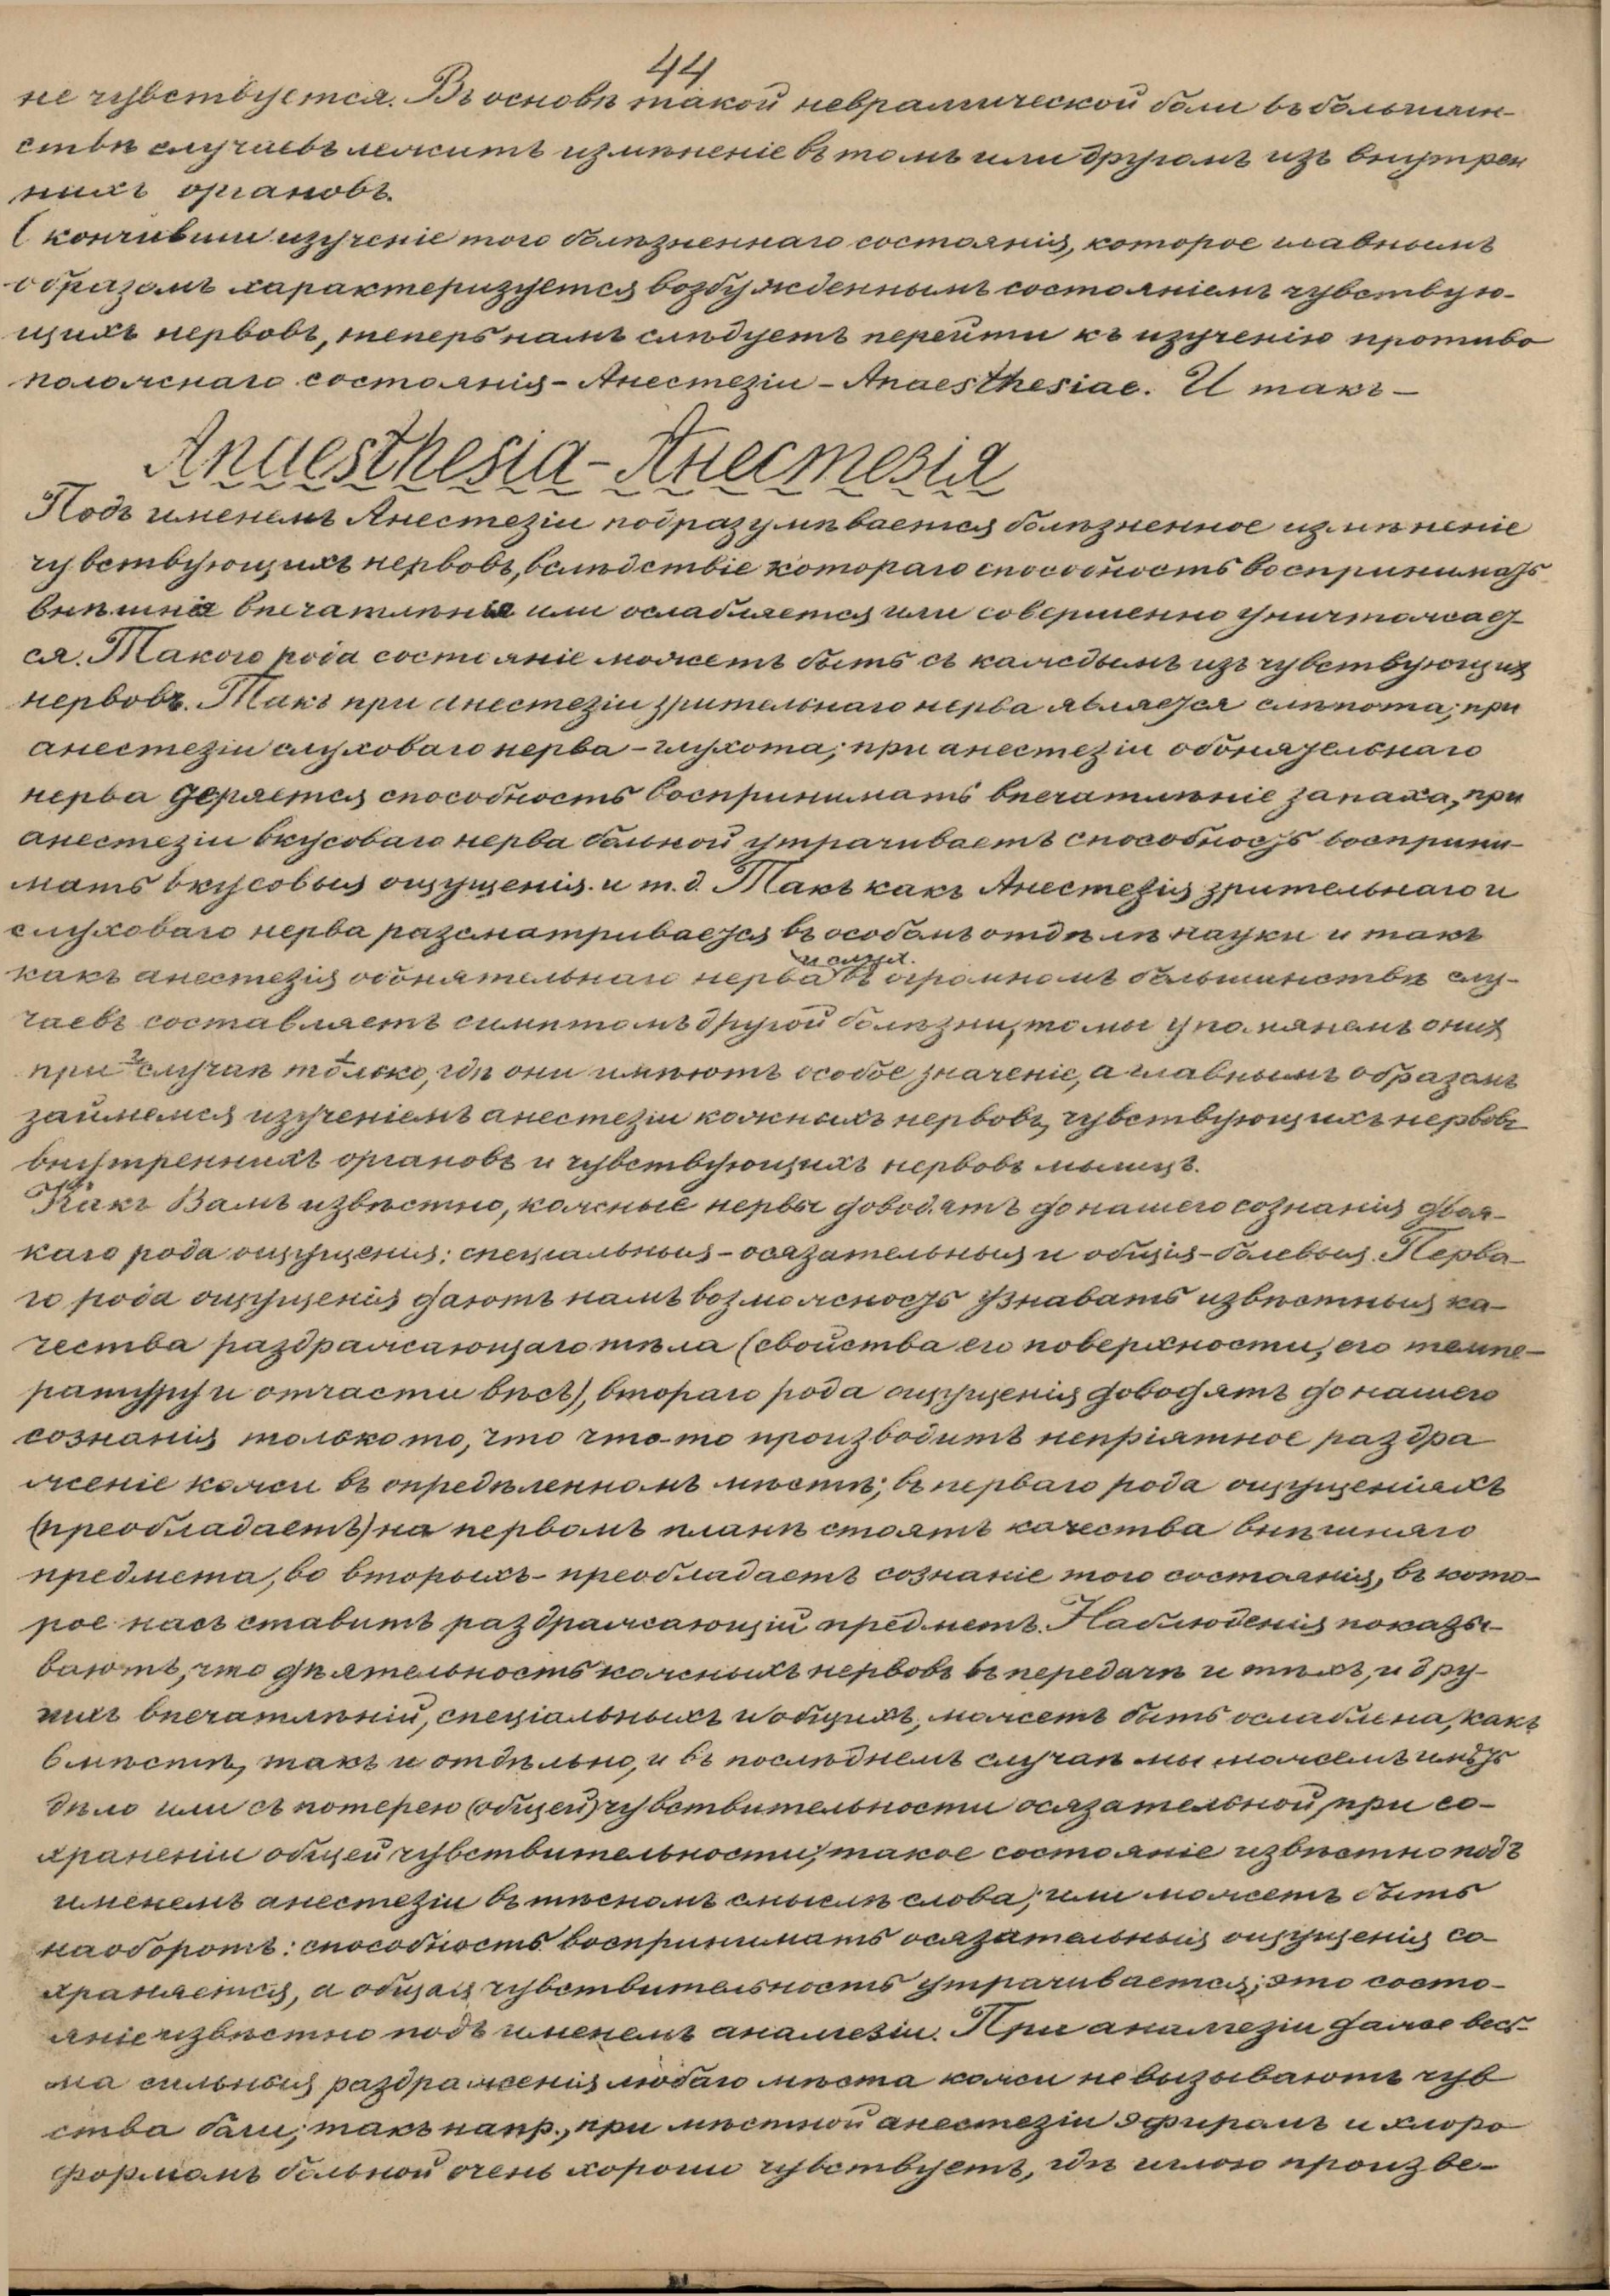 44
не чувствуется. Въ основѣ такой невралгической боли въ большин-
ствѣ случаевъ лежитъ измѣненіе въ томъ или другомъ изъ внутрен
нихъ органовъ.
Скончивши изученіе того болѣзненнаго состоянія, которое главнымъ
образомъ характеризуется возбужденнымъ состояніемъ чувствую-
щихъ нервовъ, теперь намъ слѣдуетъ перейти къ изученію противо
положнаго состоянія - Анестезіи - Anaesthesiae. И такъ —
Anaesthesia - Анестезія
Подъ именемъ Анестезіи подразумѣвается болѣзненное измѣненіе
чувствующихъ нервовъ, вслѣдствіе котораго способность воспринимать
внѣшнія впечатлѣнія или ослабляется или совершенно уничтожает-
ся. Такого рода состояніе можетъ быть съ каждымъ изъ чувствующих
нервовъ. Такъ при анестезіи зрительнаго нерва является слѣпота; при
анестезіи слуховаго нерва - глухота; при анестезіи обонятельнаго
нерва теряется способность воспринимать впечатлѣніе запаха, при
анестезіи вкусоваго нерва больной утрачиваетъ способность восприни-
мать вкусовыя ощущенія. и т. д. Такъ какъ Анестезія зрительнаго и
слуховаго нерва разсматривается въ особомъ отдѣлѣ науки и такъ
какъ анестезія обонятельнаго нерва въ огромномъ большинствѣ слу-
чаевъ составляетъ симптомъ другой болѣзни, то мы упомянемъ о них
при случаѣ только, гдѣ они имѣютъ особое значеніе, а главнымъ образомъ
займемся изученіемъ анестезіи кожныхъ нервовъ, чувствующихъ нервовъ
внутреннихъ органовъ и чувствующихъ нервовъ мышцъ.
Какъ Вамъ извѣстно, кожные нервы доводятъ до нашего сознанія двоя-
каго рода ощущенія: спеціальныя - осязательныя и общія - болевыя. Перва-
го рода ощущенія даютъ намъ возможность узнавать извѣстныя ка-
чества раздражающаго тѣла (свойства его поверхности, его темпе-
ратуру и отчасти вѣсъ), втораго рода ощущенія доводятъ до нашего
сознанія только то, что что-то производитъ непріятное раздра
женіе кожи въ опредѣленномъ мѣстѣ; въ перваго рода ощущеніяхъ
(преобладаетъ) на первомъ планѣ стоятъ качества внѣшняго
предмета, во вторыхъ - преобладаетъ сознаніе того состоянія, въ кото-
рое насъ ставитъ раздражающій предметъ. Наблюденія показы-
ваютъ, что дѣятельность кожныхъ нервовъ въ передачѣ и тѣхъ, и дру-
гихъ впечатлѣній, спеціальныхъ и общихъ, можетъ быть ослаблена, какъ
вмѣстѣ, такъ и отдѣльно, и въ послѣднемъ случаѣ мы можемъ имѣть
дѣло или съ потерею (общей) чувствительности осязательной, при со-
храненіи общей чувствительности, такое состояніе извѣстно подъ
именемъ анестезіи въ тѣсномъ смыслѣ слова; или можетъ быть
наоборотъ: способность воспринимать осязательныя ощущенія со-
храняется, а общая чувствительность утрачивается; это состо-
яніе извѣстно подъ именемъ аналгезіи. При аналгезіи даже весь-
ма сильныя раздраженія любаго мѣста кожи не вызываютъ чув
ства боли; такъ напр., при мѣстной анестезіи эфиромъ и хлоро
формомъ больной очень хорошо чувствуетъ, гдѣ иглою произве-